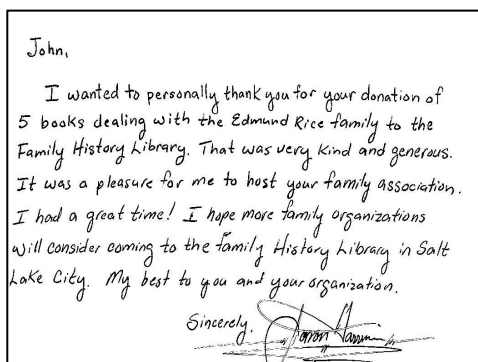 John,
I wanted to personally thank you for your donation of
5 books dealing with the Edmund Rice family to the
Family History Library. That was very kind and generous.
It was a pleasure for me to host your family association.
I had a great time! I hope more family organizations
will consider coming to the family History Library in Salt
Lake City. My best to you and your organization.
Sincerely,